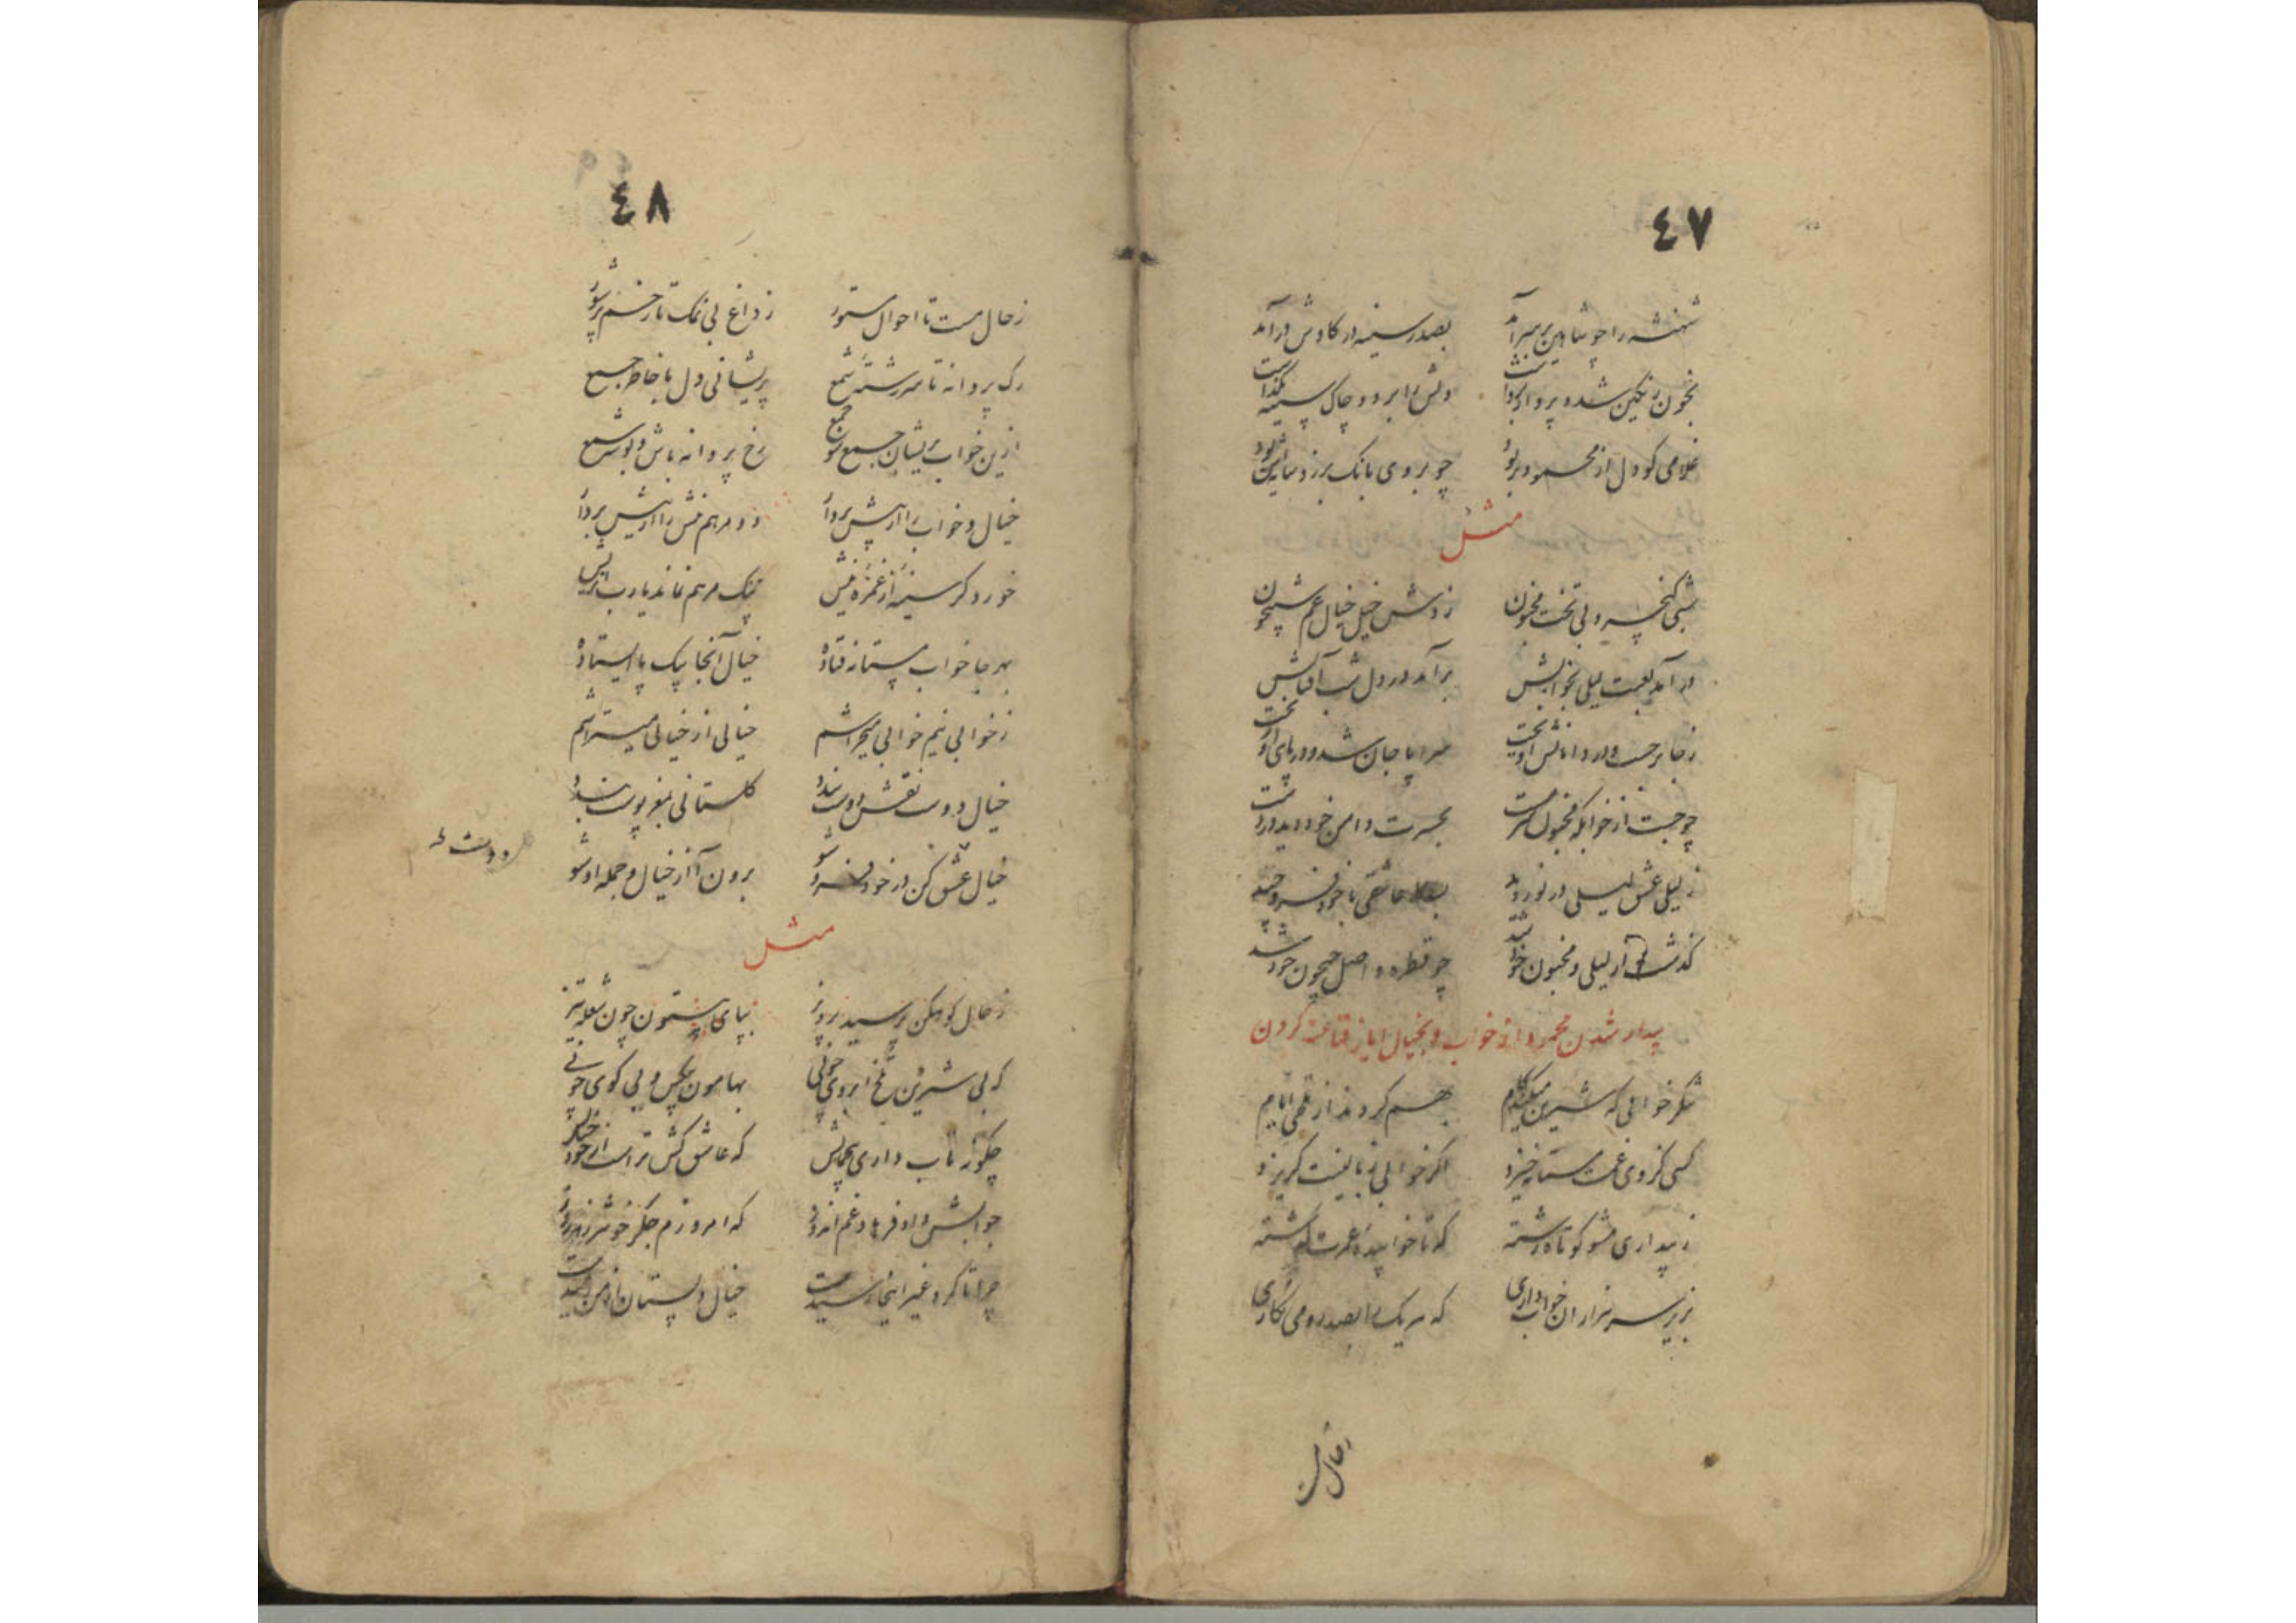 ٤٧
شهنشه را چو شاهین بر سر آمد بصدر سینه در کاوش درآمد
بخون رنگین شده پرواز
غلامی کو دل از محمود بربود چو بر وی بانک برزد شاهین
مثل
شبی کیخسرو بی تخت مجنون زدش خیل خیال غم شبیخون
در آمد لعبت لیلی بخوابش برآمد در دل شب آفتابش
ز جا برجست و در دامانش آویخت سراپا جان شد و در پای او ریخت
چو جست از خوابکه مجنون سرمست بحسرت دامن خود دید در دست
ز لیلی عشق لیلی در نوردید عاشقی با خود
گذشت از لیلی و مجنون خود شد چو قطره واصل جیحون خود شد
بیدار شدن محمود از خواب و بخیال ایاز قناعت کردن
شکر خوابی که شیرین میکند کام بهم کردند از تلخی ایام
کسی کز وی غمت مستانه خیزد اگر خوابی ز بالینت گریزد
ز بیداری مشو کوتاه رشته که تا خوابیدهٔ عمرت گذشته
بزیر سر هزاران خواب داری که هر یک را بصد رو می نگاری
٤٨
ز حال مست تا احوال مستور ز داغ بی نمک تا زخم پر شور
رک پروانه تا سر رشتهٔ شمع پریشانی دل با خاطر جمع
ازین خواب پریشان جمع شو جمع رخ پروانه باش و بوسه شمع
خیال و خواب را از پیش بردار دو مرهم نیش را از ریش بردار
خورد کر سینه از غمزه نیش نمک مرهم نماند یا رب ریش
بهر جا خواب مستانه فتاده خیال آنجا بیک پا ایستاده
ز خوابی نیم خوابی میخراشم خیالی از خیالی میتراشم
خیال دوست نقش دوست بندد گلستانی بمغز پوست بندد
خیال عشق کن در خود فرو شو برون آ از خیال و جمله او شو
دوست
مثل
ز حال کوهکن پرسید پرویز بپای بیستون چون شعله تیز
که بی شیرین تلخ ابروی چونی بهامون بیکس و بی کوی چونی
چگونه تاب داری بیجمالش که عاشق کش تر است از خود خیالش
جوابش داد فرهاد غم اندوز که امروزم جگر خوشتر ز هر روز
چرا تا کرد غیر اینجا رسیدست خیال دلستان از من رمیدست